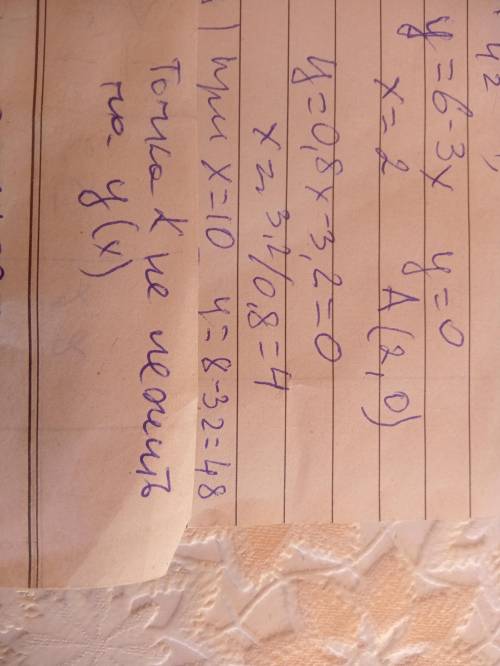 42
y = 6-3x y = 0
x = 2 A(2, 0)
y = 0,8x-3,2 = 0
x = 3,2/0,8 = 4
) при x = 10 y = 8-3,2 = 4,8
Точка K не лежить
на y(x)